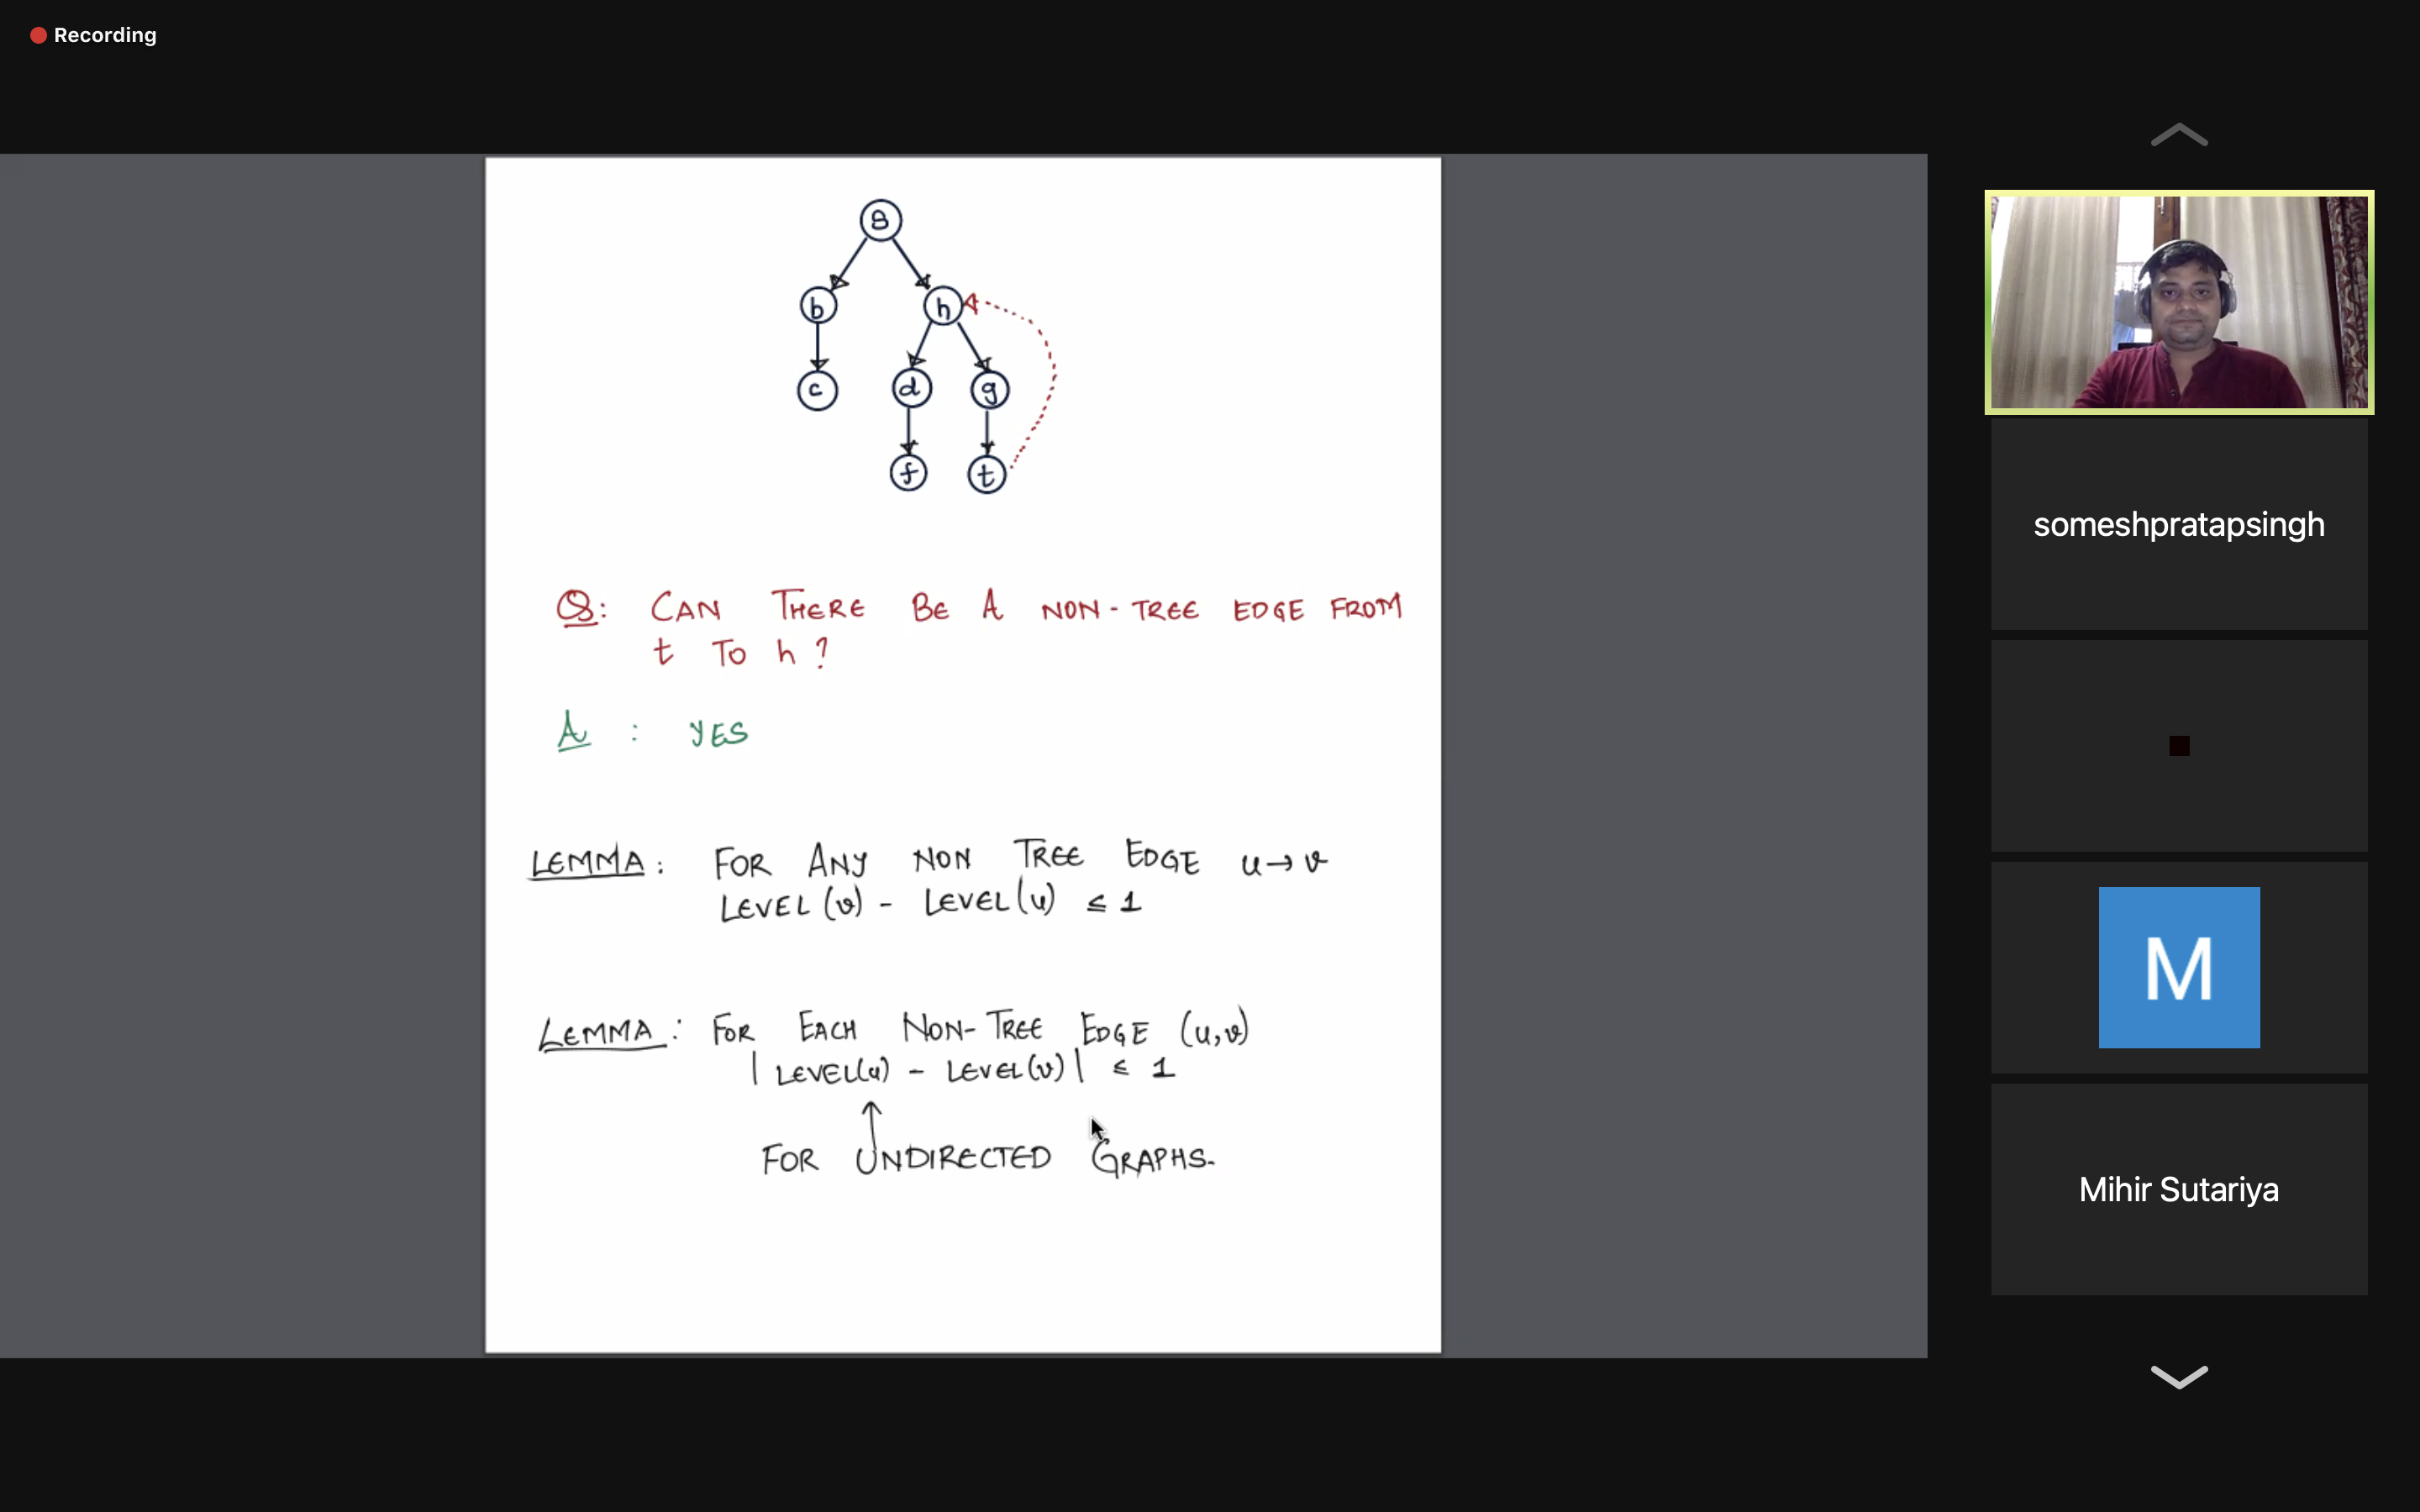 Recording
s
b
h
c
d
g
f
t
Q: CAN THERE BE A NON-TREE EDGE FROM
t TO h?
A : YES
LEMMA: FOR ANY NON TREE EDGE u→v
LEVEL(v) - LEVEL(u) ≤ 1
LEMMA: FOR EACH NON-TREE EDGE (u,v)
| LEVEL(u) - LEVEL(v)| ≤ 1
↑
FOR UNDIRECTED GRAPHS.
someshpratapsingh
M
Mihir Sutariya